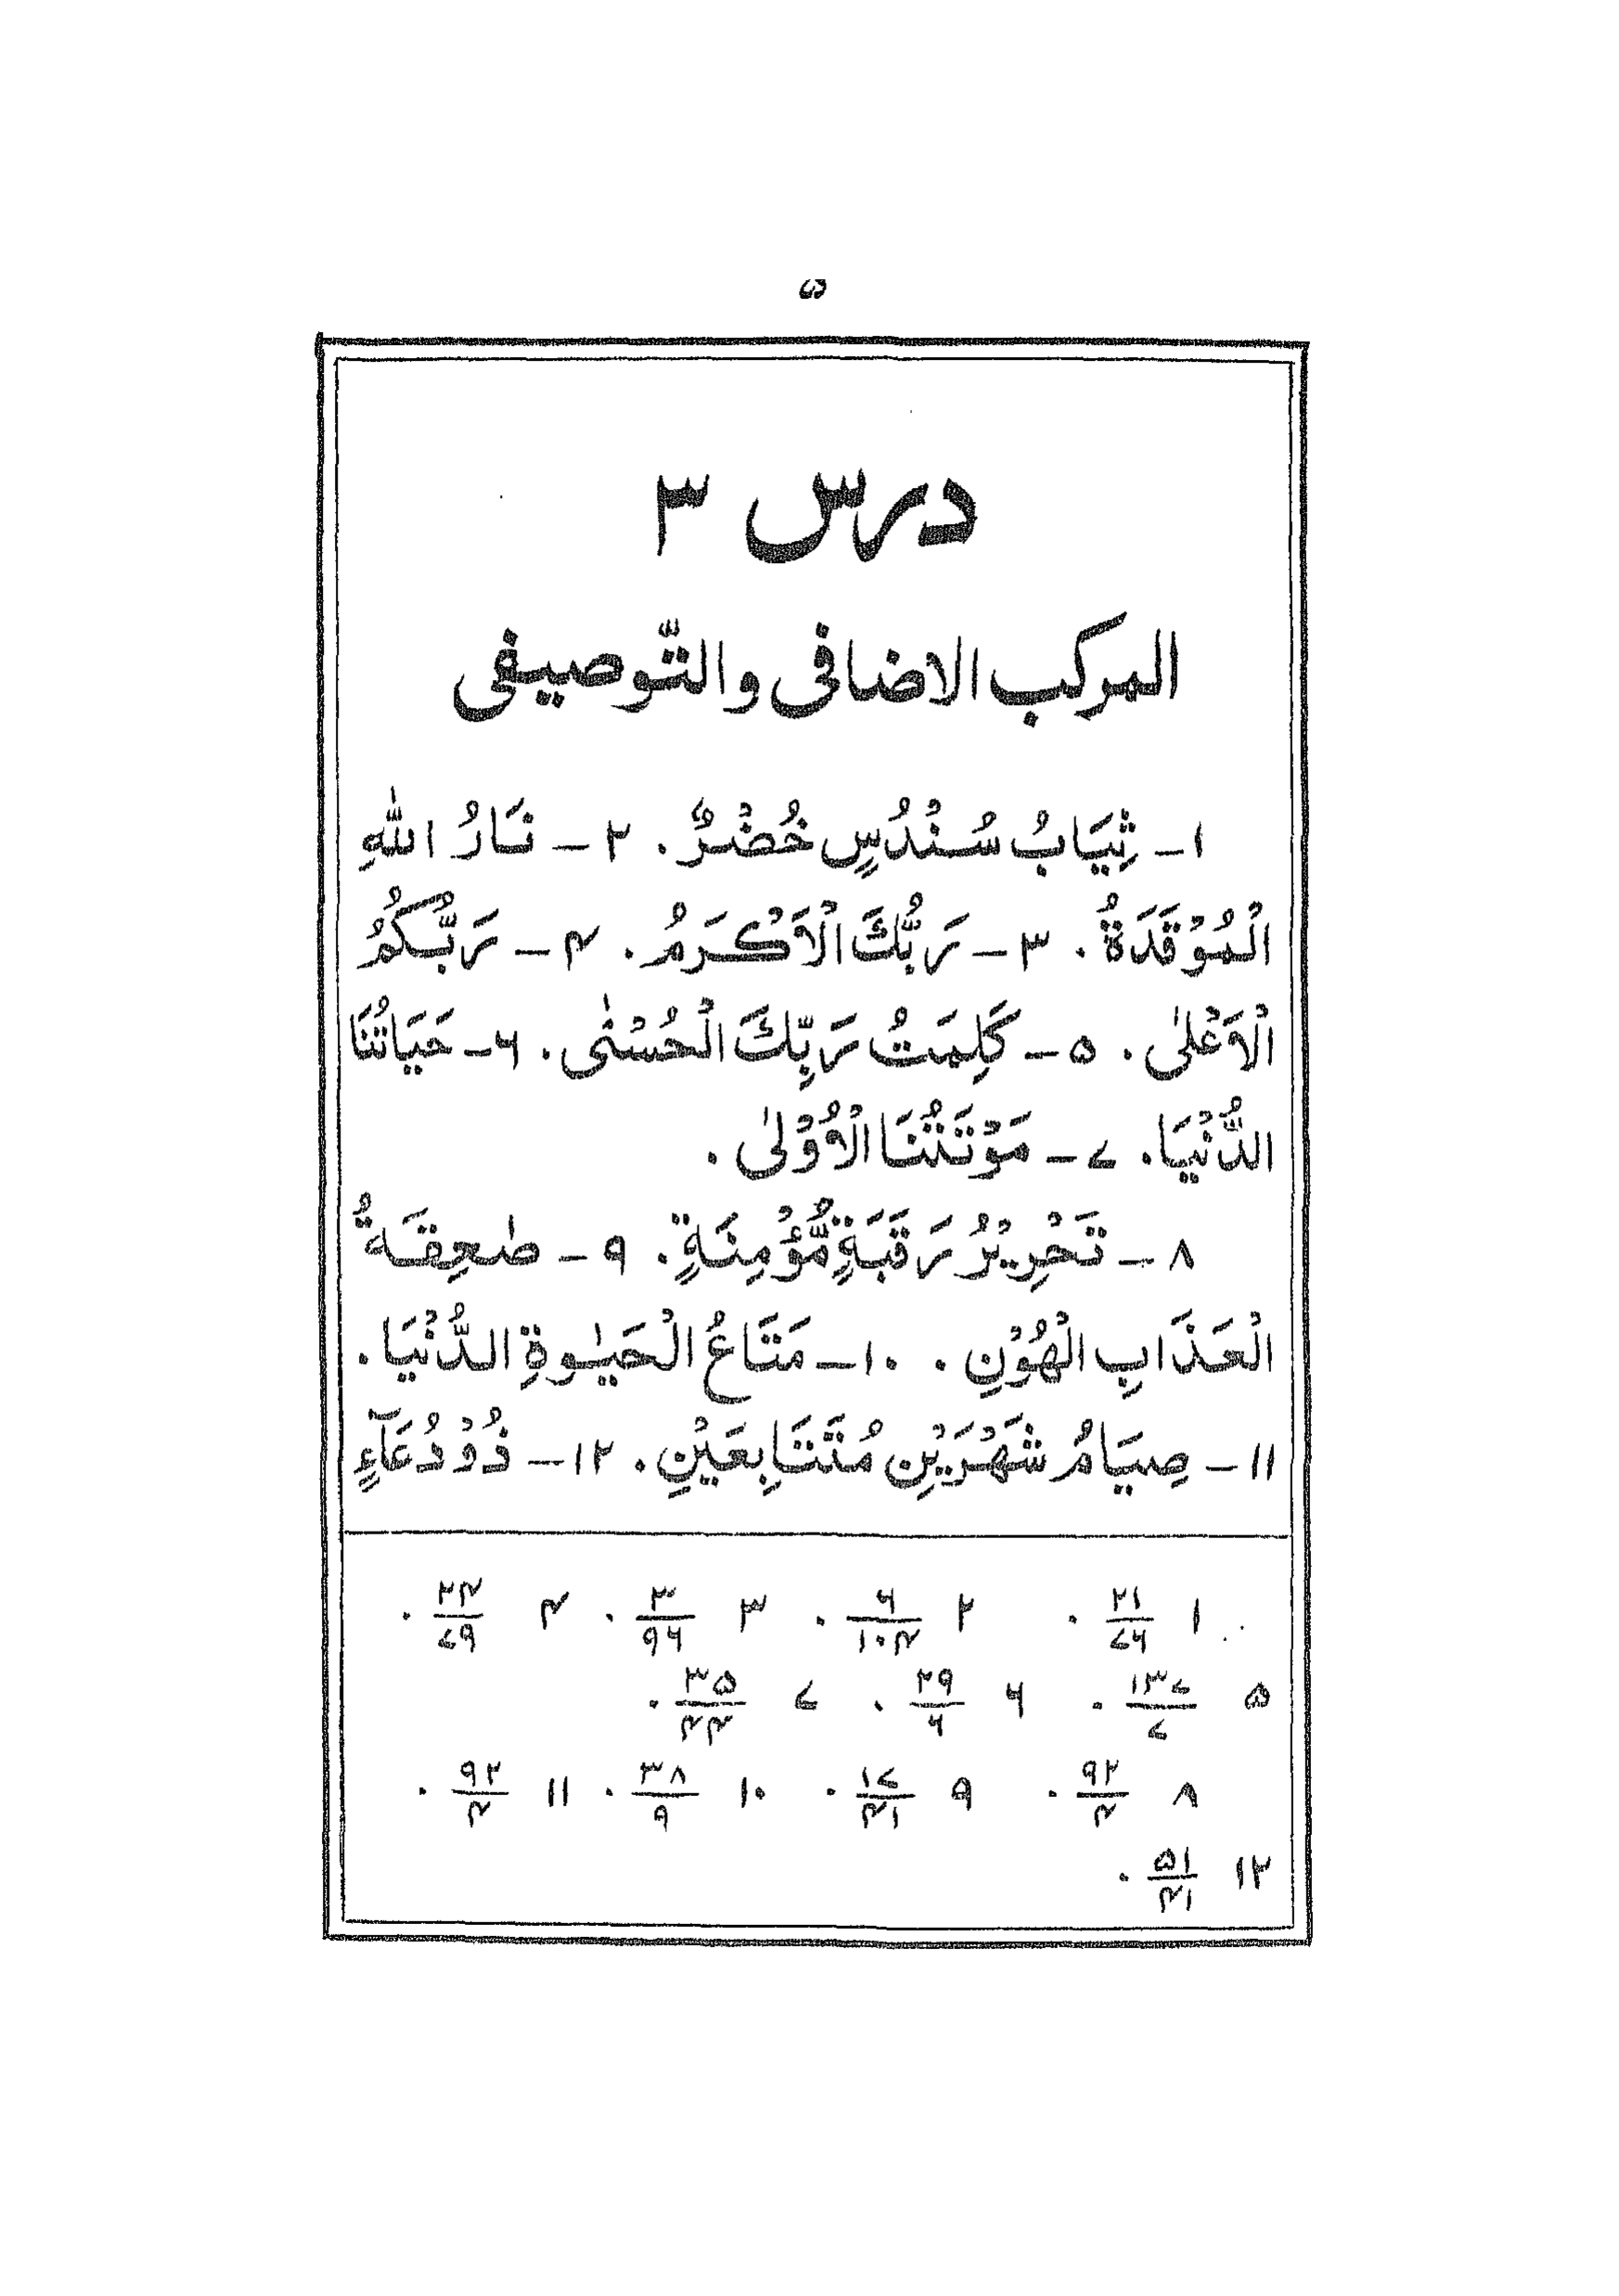 ۵
درس ۳
المركب الاضافى والتّوصيفى
۱ـ ثِيَابُ سُنْدُسٍ خُضْرٌ. ۲ـ نَارُ اللّٰهِ
الْمُوْقَدَةُ. ۳ـ رَبُّكَ الْاَكْرَمُ. ۴ـ رَبُّكُمُ
الْاَعْلٰى. ۵ـ كَلِمَتُ رَبِّكَ الْحُسْنٰى. ۶ـ حَيَاتُنَا
الدُّنْيَا. ۷ـ مَوْتَتُنَا الْاُوْلٰى.
۸ـ تَحْرِيْرُ رَقَبَةٍ مُّؤْمِنَةٍ. ۹ـ صٰعِقَةُ
الْعَذَابِ الْهُوْنِ. ۱۰ـ مَتَاعُ الْحَيٰوةِ الدُّنْيَا.
۱۱ـ صِيَامُ شَهْرَيْنِ مُتَتَابِعَيْنِ. ۱۲ـ ذُوْ دُعَآءٍ
۱ ۲۱/۷۶. ۲ ۶/۱۰۴. ۳ ۳/۹۶. ۴ ۲۴/۷۹.
۵ ۱۳۷/۷. ۶ ۲۹/۶. ۷ ۳۵/۴۴.
۸ ۹۲/۴. ۹ ۱۷/۴۱. ۱۰ ۳۸/۹. ۱۱ ۹۲/۴.
۱۲ ۵۱/۴۱.